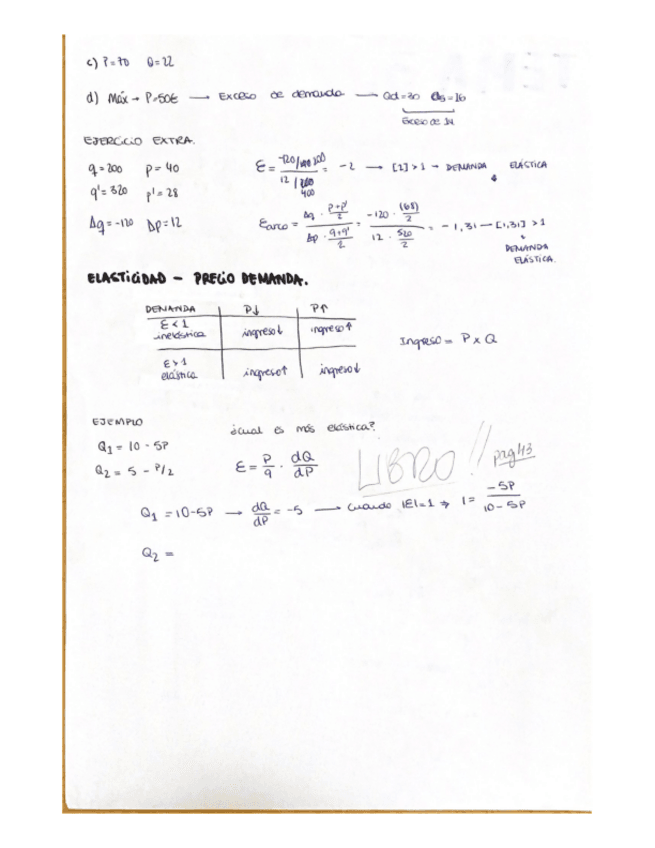 c) P=70 Q=22
d) Máx → P=50€ → Exceso de demanda → Qd=30 Qs=16
Exceso de 14
EJERCICIO EXTRA.
q=200 p=40
q'=320 p'=28
Δq=-120 Δp=12
ε = = -2 → [2]>1 → DEMANDA ELÁSTICA
Earco = Δq · p+p'/2 / Δp · q+q'/2 = -120 · (68)/2 / 12 · 520/2 = -1,31 → [1,31] >1
DEMANDA
ELÁSTICA.
ELASTICIDAD - PRECIO DEMANDA.
DEMANDA P↓ P↑
ε<1 inelástica ingreso↓ ingreso↑
ε>1 elástica ingreso↑ ingreso↓
Ingreso = P x Q
EJEMPLO ¿cual es más elástica?
Q1 = 10 - 5P
Q2 = 5 - P/2
ε = P/q · dQ/dP
LIBRO!! pag 43
Q1 = 10-5P → dQ/dP = -5 → cuando |E|=1 → 1 = -5P/10-5P
Q2 =